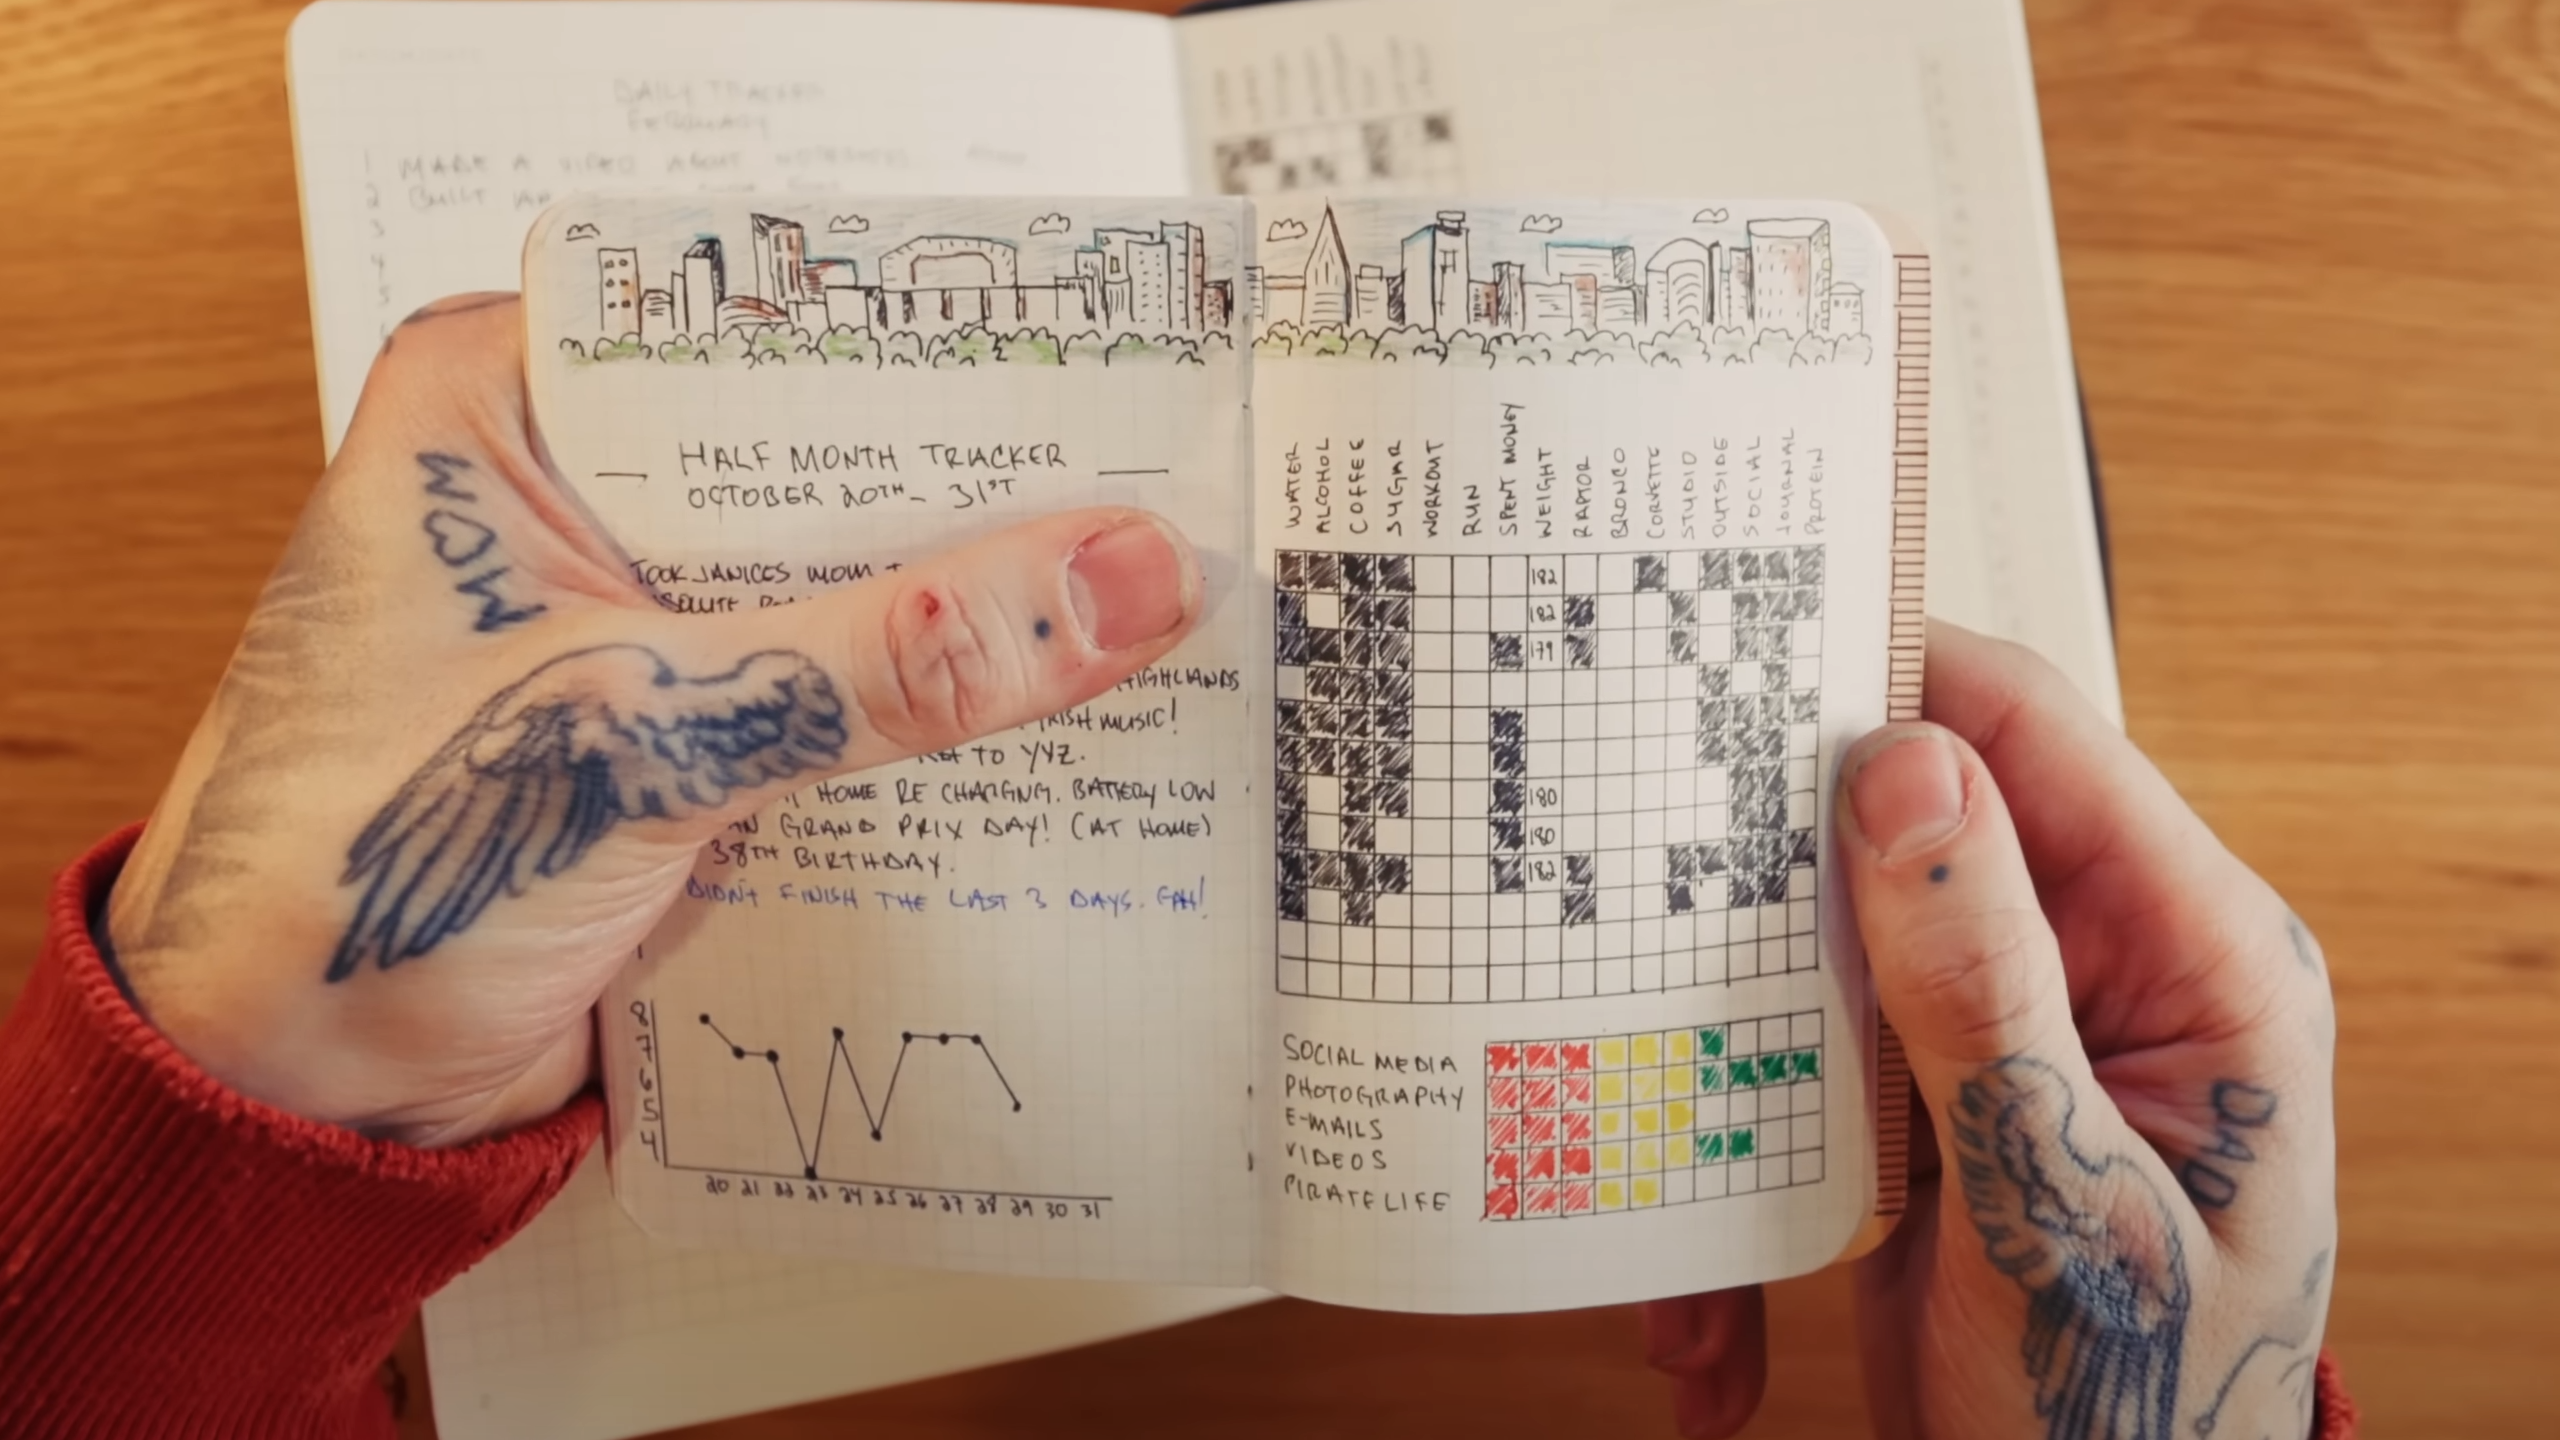 DAILY TRACKER
FEBRUARY
1 MAKE A VIDEO ABOUT
2 BUILT
3
4
5
6
HALF MONTH TRACKER
OCTOBER 20TH - 31ST
TOOK JANICES MOM +
HIGHLANDS
IRISH MUSIC!
TO YYZ.
HOME RE CHARGNG. BATTERY LOW
GRAND PRIX DAY! (AT HOME)
38TH BIRTHDAY.
DIDNT FINISH THE LAST 3 DAYS. GAH!
8
7
6
5
4
20 21 22 23 24 25 26 27 28 29 30 31
WATER ALCOHOL COFFEE SUGAR WORKOUT RUN SPENT MONEY WEIGHT RAPTOR BRONCO CORVETTE STUDIO OUTSIDE SOCIAL JOURNAL PROTEIN
182
182
179
180
180
182
SOCIAL MEDIA
PHOTOGRAPHY
E-MAILS
VIDEOS
PIRATE LIFE
MOM
DAD